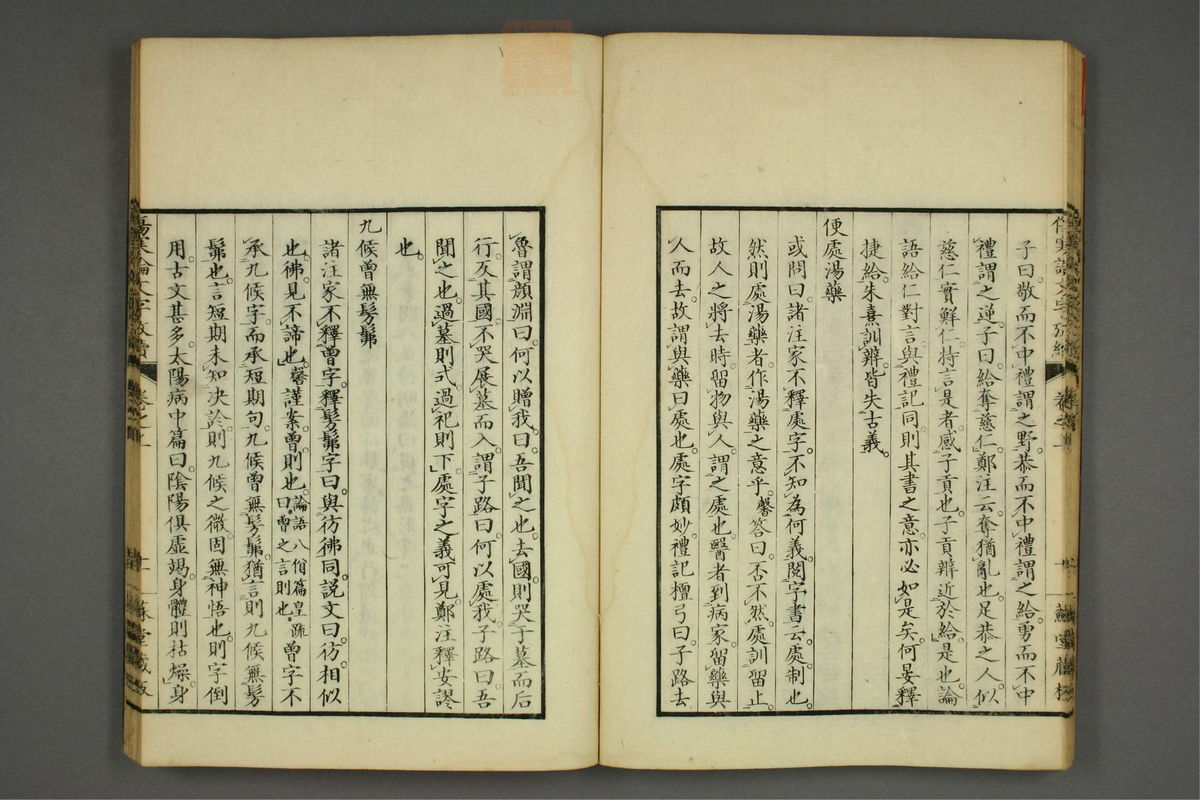 子曰。敬而不中禮謂之野。恭而不中禮謂之給。勇而不中
禮謂之逆。子曰。給奪慈仁。鄭注云。奪猶亂也。足恭之人。似
慈仁實鮮仁。特言是者。感子貢也。子貢辯近於給。是也。論
語給仁對言。與禮記同。則其書之意亦必如是矣。何晏釋
捷給。朱熹訓辨。皆失古義。
便處湯藥
或問曰。諸注家不釋處字。不知為何義。閱字書云。處。制也。
然則處湯藥者。作湯藥之意乎。馨答曰。否不然。處訓留止。
故人之將去時。留物與人。謂之處也。醫者到病家。留藥與
人而去。故謂與藥曰處也。處字頗妙。禮記檀弓曰。子路去
魯。謂顏淵曰。何以贈我。曰。吾聞之也。去國則哭于墓而后
行。反其國。不哭。展墓而入。謂子路曰。何以處我。子路曰。吾
聞之也。過墓則式。過祀則下。處字之義可見。鄭注釋安謬
也。
九候曾無髣髴
諸注家不釋曾字。釋髣髴字曰。與彷彿同。說文曰。彷相似
也。彿。見不諦也。馨謹案。曾。則也。論語八佾篇皇疏曰。曾之言則也。曾字不
承九候字。而承短期句。九候曾無髣髴。猶言則九候無髣
髴也。言短期未知決診。則九候之微。固無神悟也。則字倒
用。古文甚多。太陽病中篇曰。陰陽俱虛竭。身體則枯燥。身
傷寒論文字攷續 卷之上